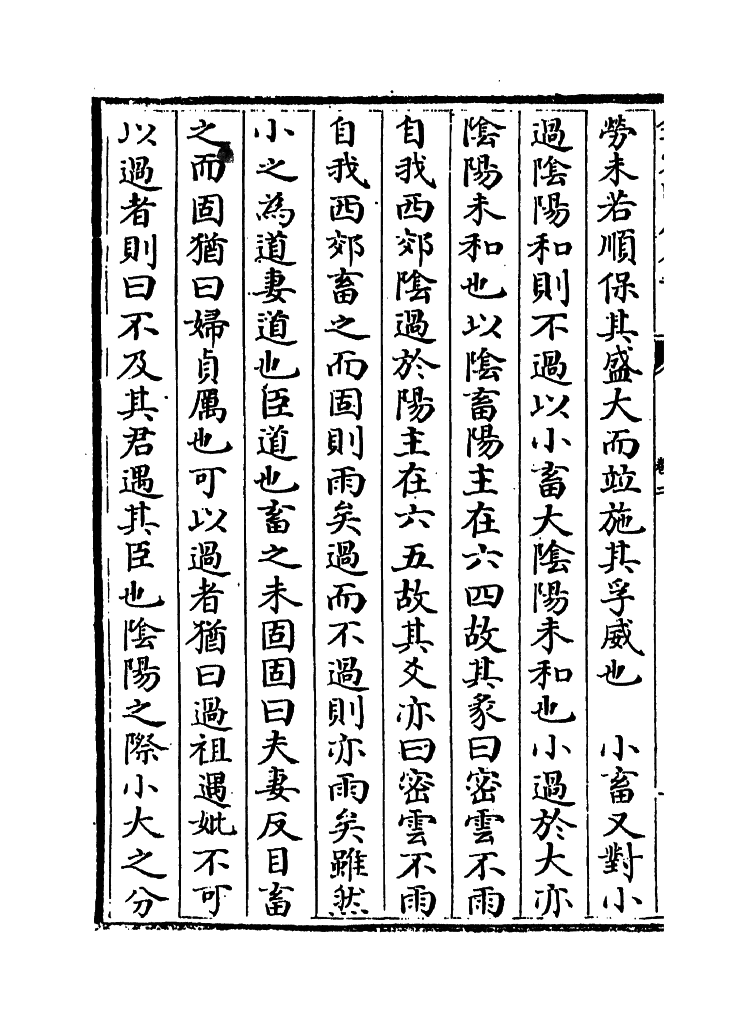 勞未若順保其盛大而竝施其孚威也　小畜又對小
過陰陽和則不過以小畜大陰陽未和也小過於大亦
陰陽未和也以陰畜陽主在六四故其彖曰密雲不雨
自我西郊陰過於陽主在六五故其爻亦曰密雲不雨
自我西郊畜之而固則雨矣過而不過則亦雨矣雖然
小之為道妻道也臣道也畜之未固固曰夫妻反目畜
之而固猶曰婦貞厲也可以過者猶曰過祖遇妣不可
以過者則曰不及其君遇其臣也陰陽之際小大之分